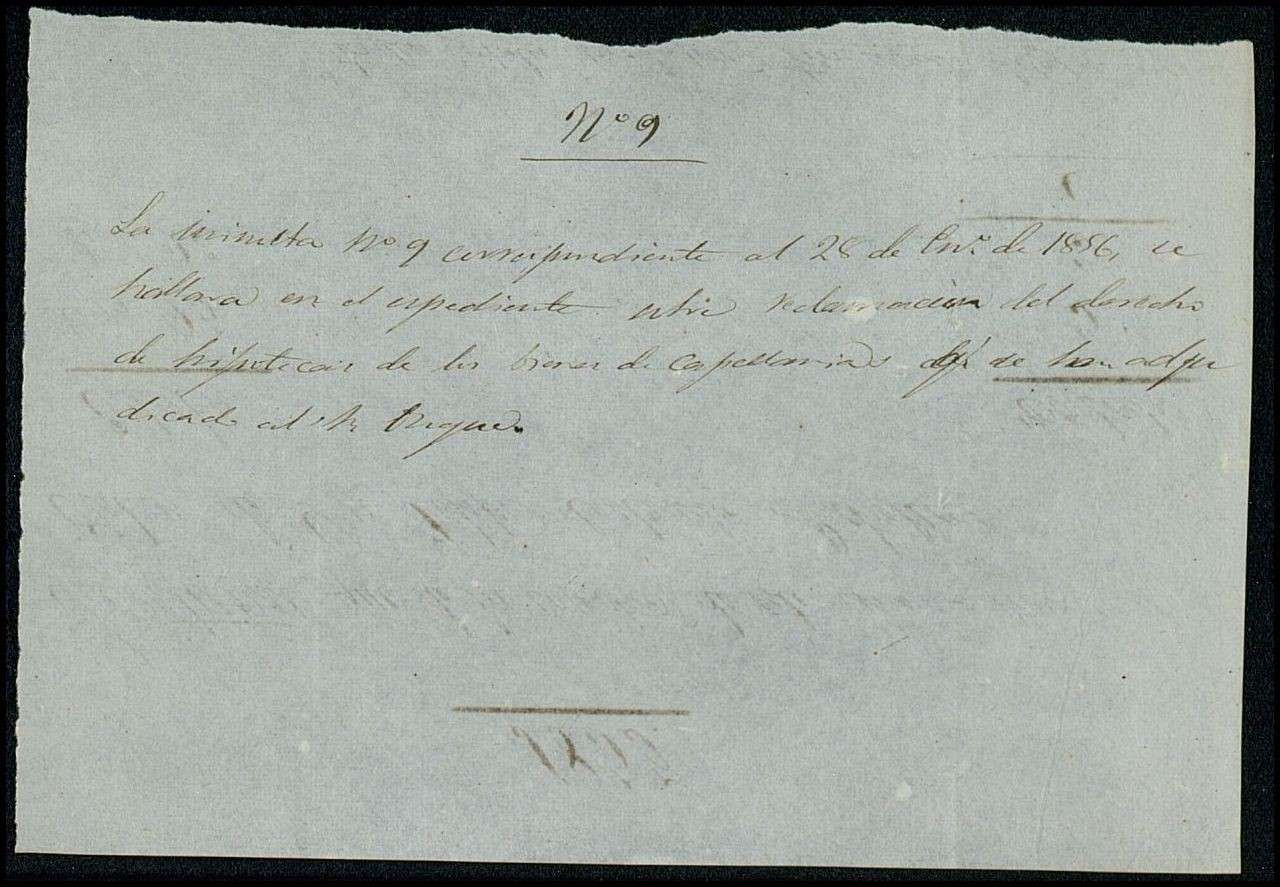 Nº 9
La minuta nº 9 correspondiente al 28 de En.º de 1856, se
hallara en el espediente sobre reclamacion del derecho
de hipotecas de los bienes de capellanias q.e se han adju
dicado al Sr.